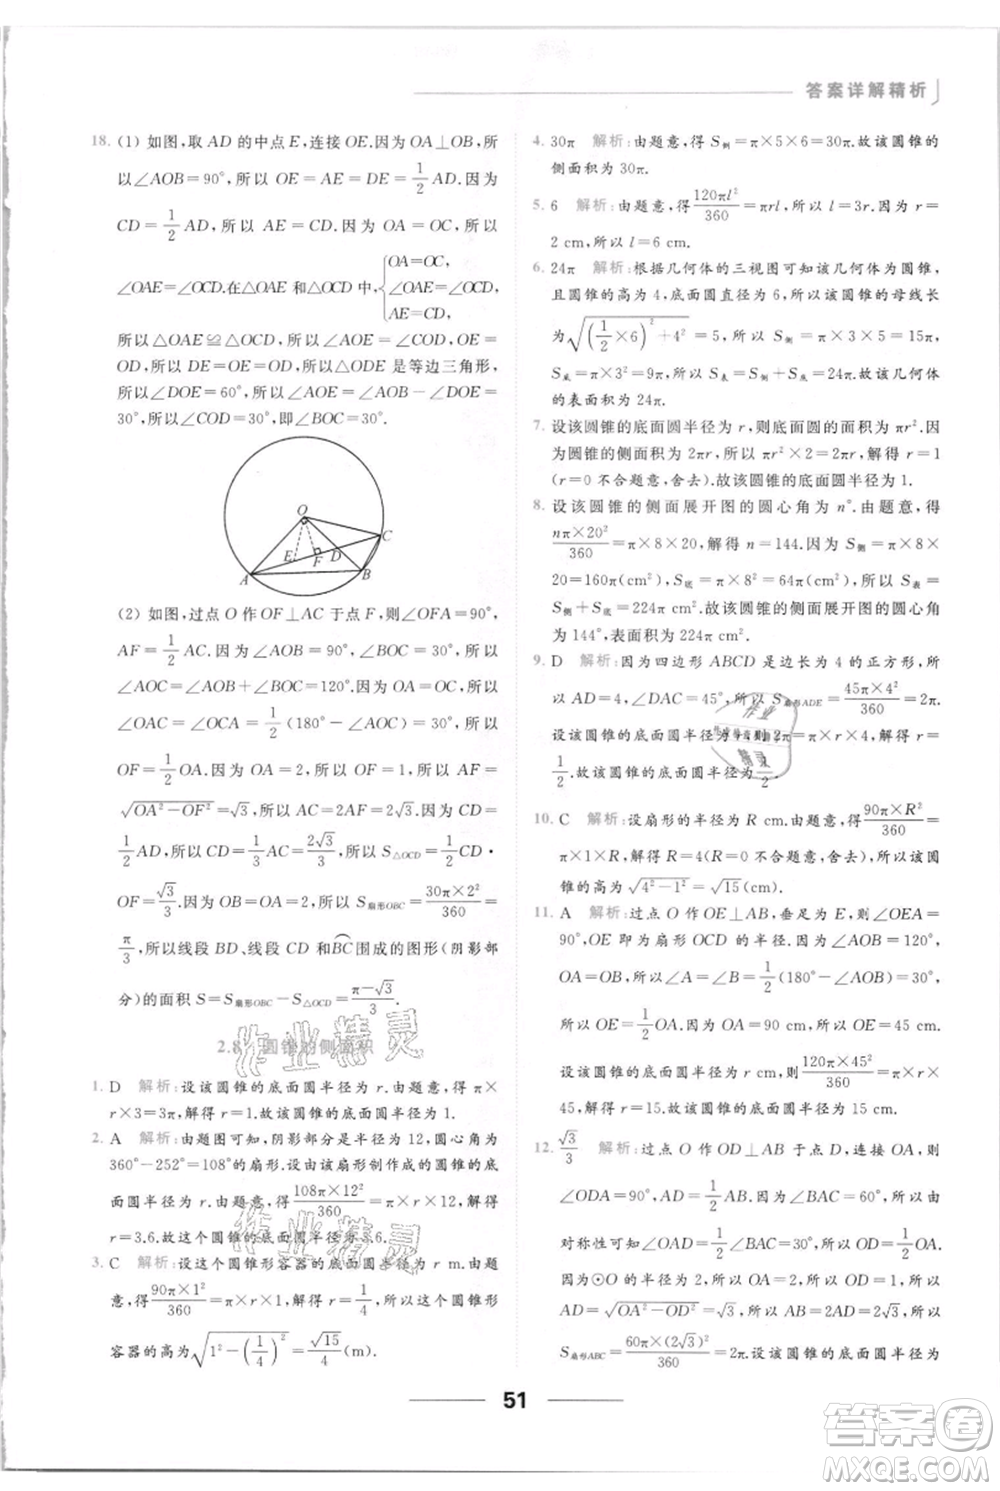 答案详解精析
18. (1) 如图,取 AD 的中点 E,连接 OE.因为 OA⊥OB,所
以∠AOB=90°,所以 OE=AE=DE=1/2 AD.因为
CD=1/2 AD,所以 AE=CD.因为 OA=OC,所以
∠OAE=∠OCD.在△OAE 和△OCD 中,{OA=OC, ∠OAE=∠OCD, AE=CD,
所以△OAE≌△OCD,所以∠AOE=∠COD,OE=
OD,所以 DE=OE=OD,所以△ODE 是等边三角形,
所以∠DOE=60°,所以∠AOE=∠BOE=∠BOC=
30°,所以∠COD=30°,即∠BOC=30°.
O
E F D C
A B
(2) 如图,过点 O 作 OF⊥AC 于点 F,则∠OFA=90°,
AF=1/2 AC.因为∠AOB=90°,∠BOC=30°,所以
∠AOC=∠AOB+∠BOC=120°.因为 OA=OC,所以
∠OAC=∠OCA=1/2(180°-∠AOC)=30°,所以
OF=1/2 OA.因为 OA=2,所以 OF=1,所以 AF=
√(OA²-OF²)=√3,所以 AC=2AF=2√3.因为 CD=
1/2 AD,所以 CD=1/3 AC=2√3/3,所以 S△OCD=1/2 CD·
OF=√3/3.因为 OB=OA=2,所以 S扇形OBC=30π×2²/360=
π/3,所以线段 BD、线段 CD 和BC围成的图形(阴影部
分)的面积 S=S扇形OBC-S△OCD=π-√3/3.
2.8 圆锥的侧面积
1. D 解析:设该圆锥的底面圆半径为 r.由题意,得 π×
r×3=3π,解得 r=1.故该圆锥的底面圆半径为 1.
2. A 解析:由题图可知,阴影部分是半径为 12,圆心角为
360°-252°=108°的扇形.设该扇形制作的圆锥的底
面圆半径为 r.由题意,得 108π×12²/360=π×r×12,解得
r=3.6.故这个圆锥的底面圆半径为 3.6.
3. C 解析:设这个圆锥形容器的底面圆半径为 r m.由题
意,得 90π×1²/360=π×r×1,解得 r=1/4.故这个圆锥形
容器的高为√(1²-(1/4)²)=√15/4(m).
4. 30π 解析:由题意,得 S侧=π×5×6=30π.故该圆锥的
侧面积为 30π.
5. 6 解析:由题意,得120πl²/360=πrl,所以 l=3r.因为 r=
2 cm,所以 l=6 cm.
6. 24π 解析:根据几何体的三视图可知该几何体为圆锥,
且圆锥的高为 4,底面圆直径为 6,所以该圆锥的母线长
为√((1/2×6)²+4²)=5,所以 S侧=π×3×5=15π,
S底=π×3²=9π,所以 S表=S侧+S底=24π.故该几何体
的表面积为 24π.
7. 设该圆锥的底面圆半径为 r,则底面圆的面积为 πr².因
为该圆锥的侧面积为 2πr,所以 πr²=2πr,解得 r=1
(r=0 不合题意,舍去).故该圆锥的底面圆半径为 1.
8. 设该圆锥的侧面展开图的圆心角为 n°.由题意,得
nπ×20²/360=π×8×20,解得 n=144.因为 S侧=π×8×
20=160π(cm²),S底=π×8²=64π(cm²),所以 S表=
S侧+S底=224π(cm²).故该圆锥的侧面展开图的圆心角
为 144°,表面积为 224π cm².
9. D 解析:因为四边形 ABCD 是边长为 4 的正方形,所
以 AD=4,∠DAC=45°,所以 S扇形ADE=45π×4²/360=2π.
设该圆锥的底面圆半径为 r,则 2π=π×r×4,解得 r=
1/2.故该圆锥的底面圆半径为1/2.
10. C 解析:设扇形的半径为 R cm.由题意,得90π×R²/360=
π×1×R,解得 R=4(R=0 不合题意,舍去),所以圆
锥的高为√(4²-1²)=√15(cm).
11. A 解析:过点 O 作 OE⊥AB,垂足为 E,则∠OEA=
90°,OE 即为扇形 OCD 的半径.因为∠AOB=120°,
OA=OB,所以∠A=∠B=1/2(180°-∠AOB)=30°,
所以 OE=1/2 OA.因为 OA=90 cm,所以 OE=45 cm.
设该圆锥的底面圆半径为 r cm,则120π×45²/360=π×r×
45,解得 r=15.故该圆锥的底面圆半径为 15 cm.
12. √3/3 解析:过点 O 作 OD⊥AB 于点 D,连接 OA,则
∠ODA=90°,AD=1/2 AB.因为∠BAC=60°,所以由
对称性可知∠OAD=1/2∠BAC=30°,所以 OD=1/2 OA.
因为⊙O 的半径为 2,所以 OA=2,所以 OD=1,所以
AD=√(OA²-OD²)=√3,所以 AB=2AD=2√3,所以
S扇形ABC=60π×(2√3)²/360=2π.设该圆锥的底面圆半径为
51
作业精灵
作业精灵
作业
精灵
答案圈
MXQE.COM